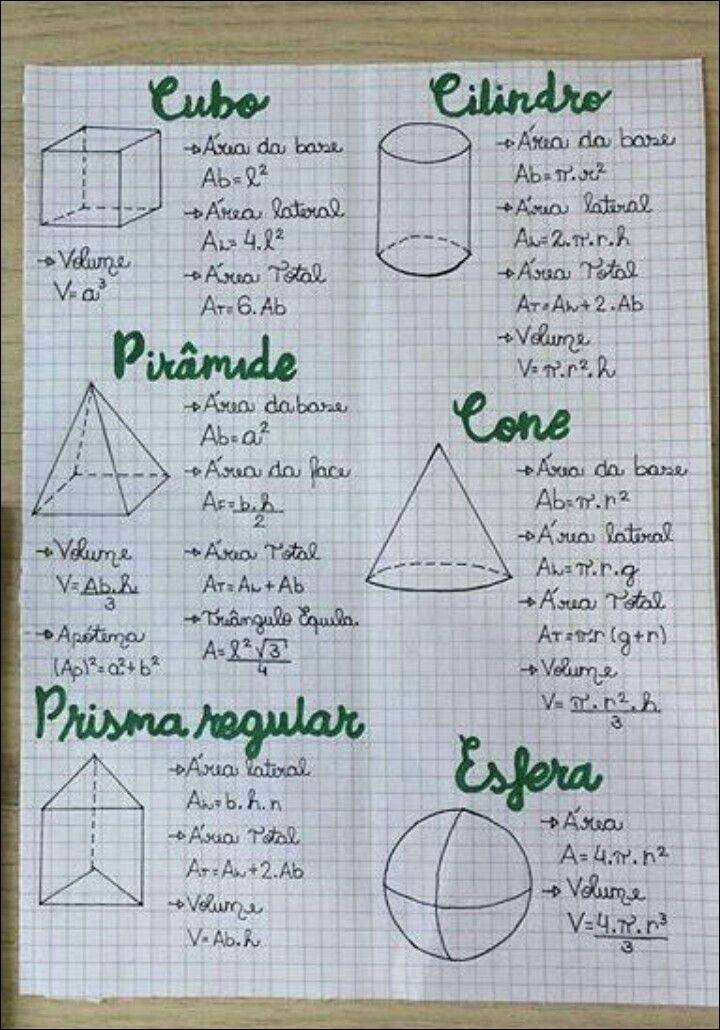 Cubo
→Área da base
Ab=l²
→Área lateral
AL=4.l²
→Área Total
AT=6.Ab
→Volume
V=a³
Cilindro
→Área da base
Ab=π.r²
→Área lateral
AL=2.π.r.h
→Área Total
AT=AL+2.Ab
→Volume
V=π.r².h
Pirâmide
→Área da base
Ab=a²
→Área da face
AF=b.h/2
→Volume
V=Ab.h/3
→Área Total
AT=AL+Ab
→Apótema
(Ap)²=a²+b²
→Triângulo Equila.
A=l²√3/4
Cone
→Área da base
Ab=π.r²
→Área lateral
AL=π.r.g
→Área Total
AT=πr(g+r)
→Volume
V=π.r².h/3
Prisma regular
→Área lateral
AL=b.h.n
→Área Total
AT=AL+2.Ab
→Volume
V=Ab.h
Esfera
→Área
A=4.π.r²
→Volume
V=4.π.r³/3